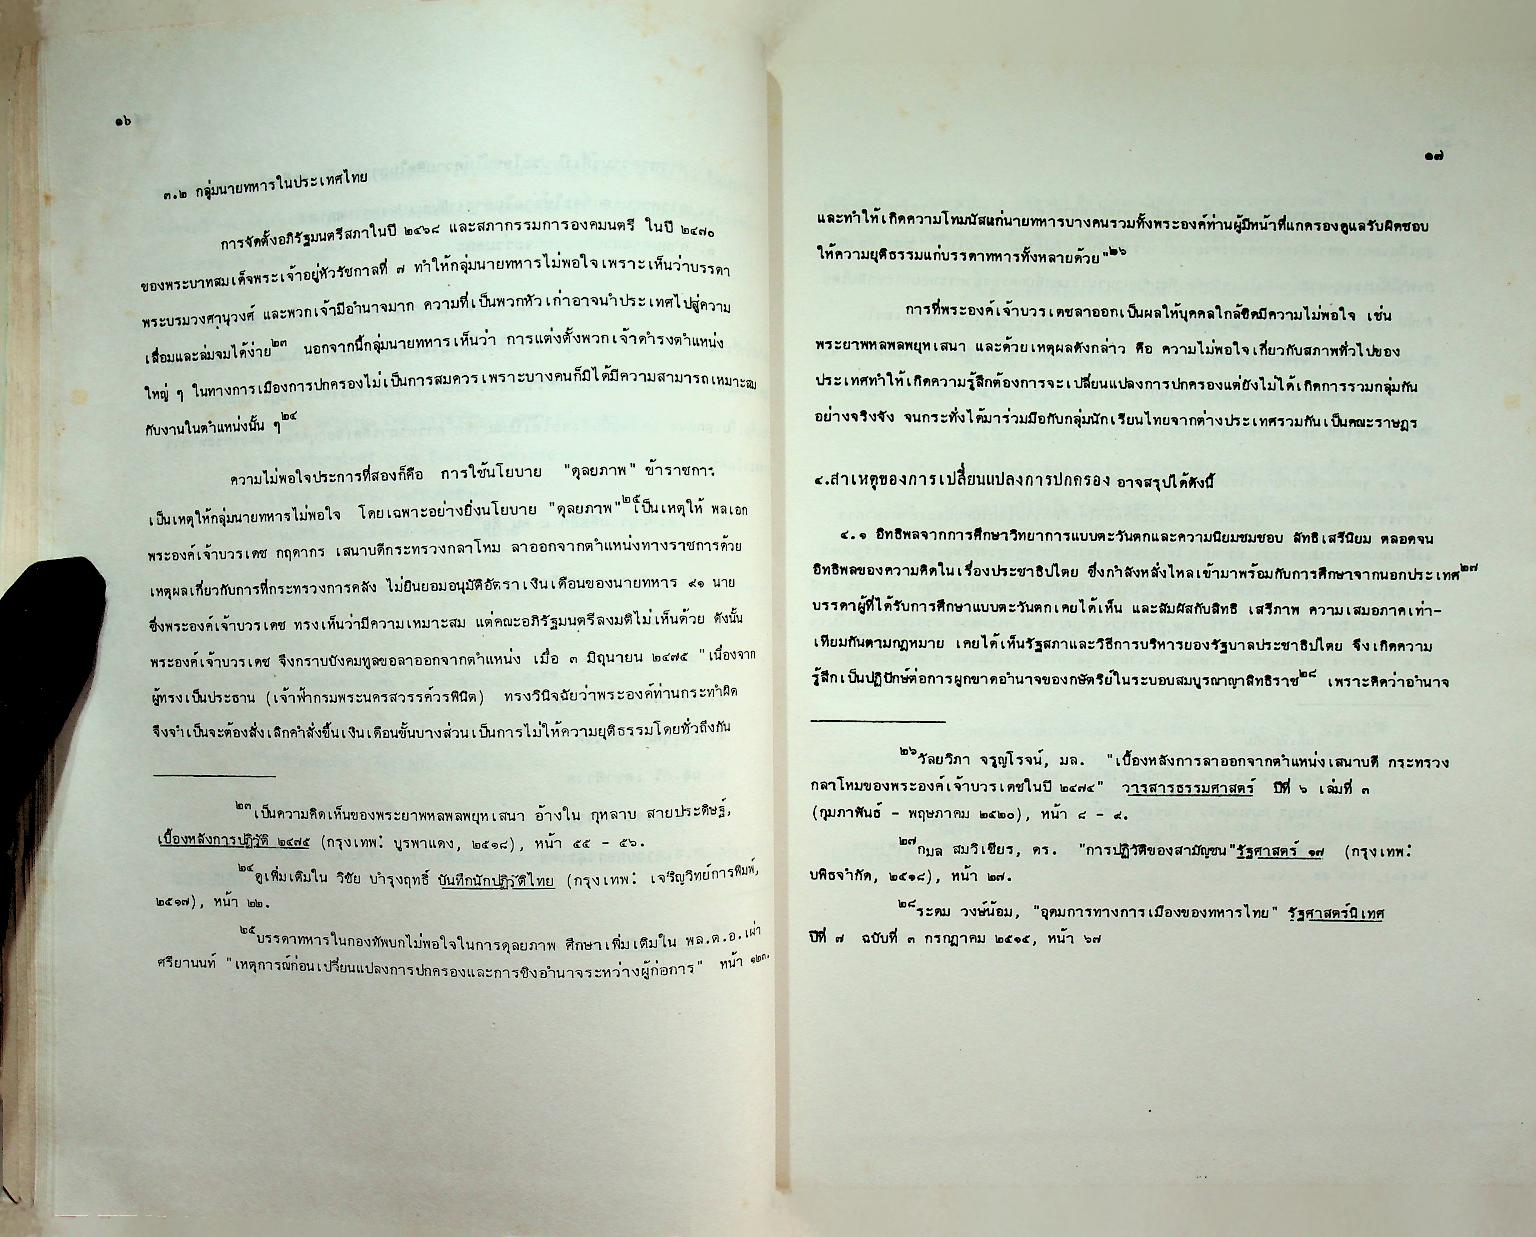 ๑๖
๓.๒ กลุ่มนายทหารในประเทศไทย
การจัดตั้งอภิรัฐมนตรีสภาในปี ๒๔๖๘ และสภากรรมการองคมนตรี ในปี ๒๔๗๐
ของพระบาทสมเด็จพระเจ้าอยู่หัวรัชกาลที่ ๗ ทำให้กลุ่มนายทหารไม่พอใจ เพราะเห็นว่าบรรดา
พระบรมวงศานุวงศ์ และพวกเจ้ามีอำนาจมาก ความที่เป็นพวกหัวเก่าอาจนำประเทศไปสู่ความ
เสื่อมและล่มจมได้ง่าย๒๓ นอกจากนี้กลุ่มนายทหารเห็นว่า การแต่งตั้งพวกเจ้าดำรงตำแหน่ง
ใหญ่ ๆ ในทางการเมืองการปกครองไม่เป็นการสมควรเพราะบางคนก็มิได้มีความสามารถเหมาะสม
กับงานในตำแหน่งนั้น ๆ๒๔
ความไม่พอใจประการที่สองก็คือ การใช้นโยบาย "ดุลยภาพ" ข้าราชการ
เป็นเหตุให้กลุ่มนายทหารไม่พอใจ โดยเฉพาะอย่างยิ่งนโยบาย "ดุลยภาพ"๒๕ เป็นเหตุให้ พลเอก
พระองค์เจ้าบวรเดช กฤดากร เสนาบดีกระทรวงกลาโหม ลาออกจากตำแหน่งทางราชการด้วย
เหตุผลเกี่ยวกับการที่กระทรวงการคลัง ไม่ยินยอมอนุมัติอัตราเงินเดือนของนายทหาร ๙๑ นาย
ซึ่งพระองค์เจ้าบวรเดช ทรงเห็นว่ามีความเหมาะสม แต่คณะอภิรัฐมนตรีลงมติไม่เห็นด้วย ดังนั้น
พระองค์เจ้าบวรเดช จึงกราบบังคมทูลขอลาออกจากตำแหน่ง เมื่อ ๓ มิถุนายน ๒๔๗๕ "เนื่องจาก
ผู้ทรงเป็นประธาน (เจ้าฟ้ากรมพระนครสวรรค์วรพินิต) ทรงวินิจฉัยว่าพระองค์ท่านกระทำผิด
จึงจำเป็นจะต้องสั่งเลิกคำสั่งขึ้นเงินเดือนขั้นบางส่วนเป็นการไม่ให้ความยุติธรรมโดยทั่วถึงกัน
๒๓เป็นความคิดเห็นของพระยาพหลพลพยุหเสนา อ้างใน กุหลาบ สายประดิษฐ์,
เบื้องหลังการปฏิวัติ ๒๔๗๕ (กรุงเทพ: บูรพาแดง, ๒๕๑๘), หน้า ๕๕ - ๕๖.
๒๔ดูเพิ่มเติมใน วิชัย บำรุงฤทธิ์ บันทึกนักปฏิวัติไทย (กรุงเทพ: เจริญวิทย์การพิมพ์,
๒๕๑๗), หน้า ๒๒.
๒๕บรรดาทหารในกองทัพบกไม่พอใจในการดุลยภาพ ศึกษาเพิ่มเติมใน พล.ต.อ.เผ่า
ศรียานนท์ "เหตุการณ์ก่อนเปลี่ยนแปลงการปกครองและการชิงอำนาจระหว่างผู้ก่อการ" หน้า ๑๒๓.
๑๗
และทำให้เกิดความโทมนัสแก่นายทหารบางคนรวมทั้งพระองค์ท่านผู้มีหน้าที่แกครองดูแลรับผิดชอบ
ให้ความยุติธรรมแก่บรรดาทหารทั้งหลายด้วย"๒๖
การที่พระองค์เจ้าบวรเดชลาออกเป็นผลให้บุคคลใกล้ชิดมีความไม่พอใจ เช่น
พระยาพหลพลพยุหเสนา และด้วยเหตุผลดังกล่าว คือ ความไม่พอใจเกี่ยวกับสภาพทั่วไปของ
ประเทศทำให้เกิดความรู้สึกต้องการจะเปลี่ยนแปลงการปกครองแต่ยังไม่ได้เกิดการรวมกลุ่มกัน
อย่างจริงจัง จนกระทั่งได้มาร่วมมือกับกลุ่มนักเรียนไทยจากต่างประเทศรวมกันเป็นคณะราษฎร
๔.สาเหตุของการเปลี่ยนแปลงการปกครอง อาจสรุปได้ดังนี้
๔.๑ อิทธิพลจากการศึกษาวิทยาการแบบตะวันตกและความนิยมชมชอบ ลัทธิเสรีนิยม ตลอดจน
อิทธิพลของความคิดในเรื่องประชาธิปไตย ซึ่งกำลังหลั่งไหลเข้ามาพร้อมกับการศึกษาจากนอกประเทศ๒๗
บรรดาผู้ที่ได้รับการศึกษาแบบตะวันตกเคยได้เห็น และสัมผัสกับสิทธิ เสรีภาพ ความเสมอภาคเท่า-
เทียมกันตามกฎหมาย เคยได้เห็นรัฐสภาและวิธีการบริหารของรัฐบาลประชาธิปไตย จึงเกิดความ
รู้สึกเป็นปฏิปักษ์ต่อการผูกขาดอำนาจของกษัตริย์ในระบอบสมบูรณาญาสิทธิราช๒๘ เพราะคิดว่าอำนาจ
๒๖วัลยวิภา จรูญโรจน์, มล. "เบื้องหลังการลาออกจากตำแหน่งเสนาบดี กระทรวง
กลาโหมของพระองค์เจ้าบวรเดชในปี ๒๔๗๔" วารสารธรรมศาสตร์ ปีที่ ๖ เล่มที่ ๓
(กุมภาพันธ์ - พฤษภาคม ๒๕๒๐), หน้า ๘ - ๙.
๒๗กมล สมวิเชียร, ดร. "การปฏิวัติของสามัญชน"รัฐศาสตร์ ๑๗ (กรุงเทพ:
บพิธจำกัด, ๒๕๑๘), หน้า ๒๗.
๒๘ระดม วงษ์น้อม, "อุดมการทางการเมืองของทหารไทย" รัฐศาสตร์นิเทศ
ปีที่ ๗ ฉบับที่ ๓ กรกฎาคม ๒๕๑๕, หน้า ๖๗